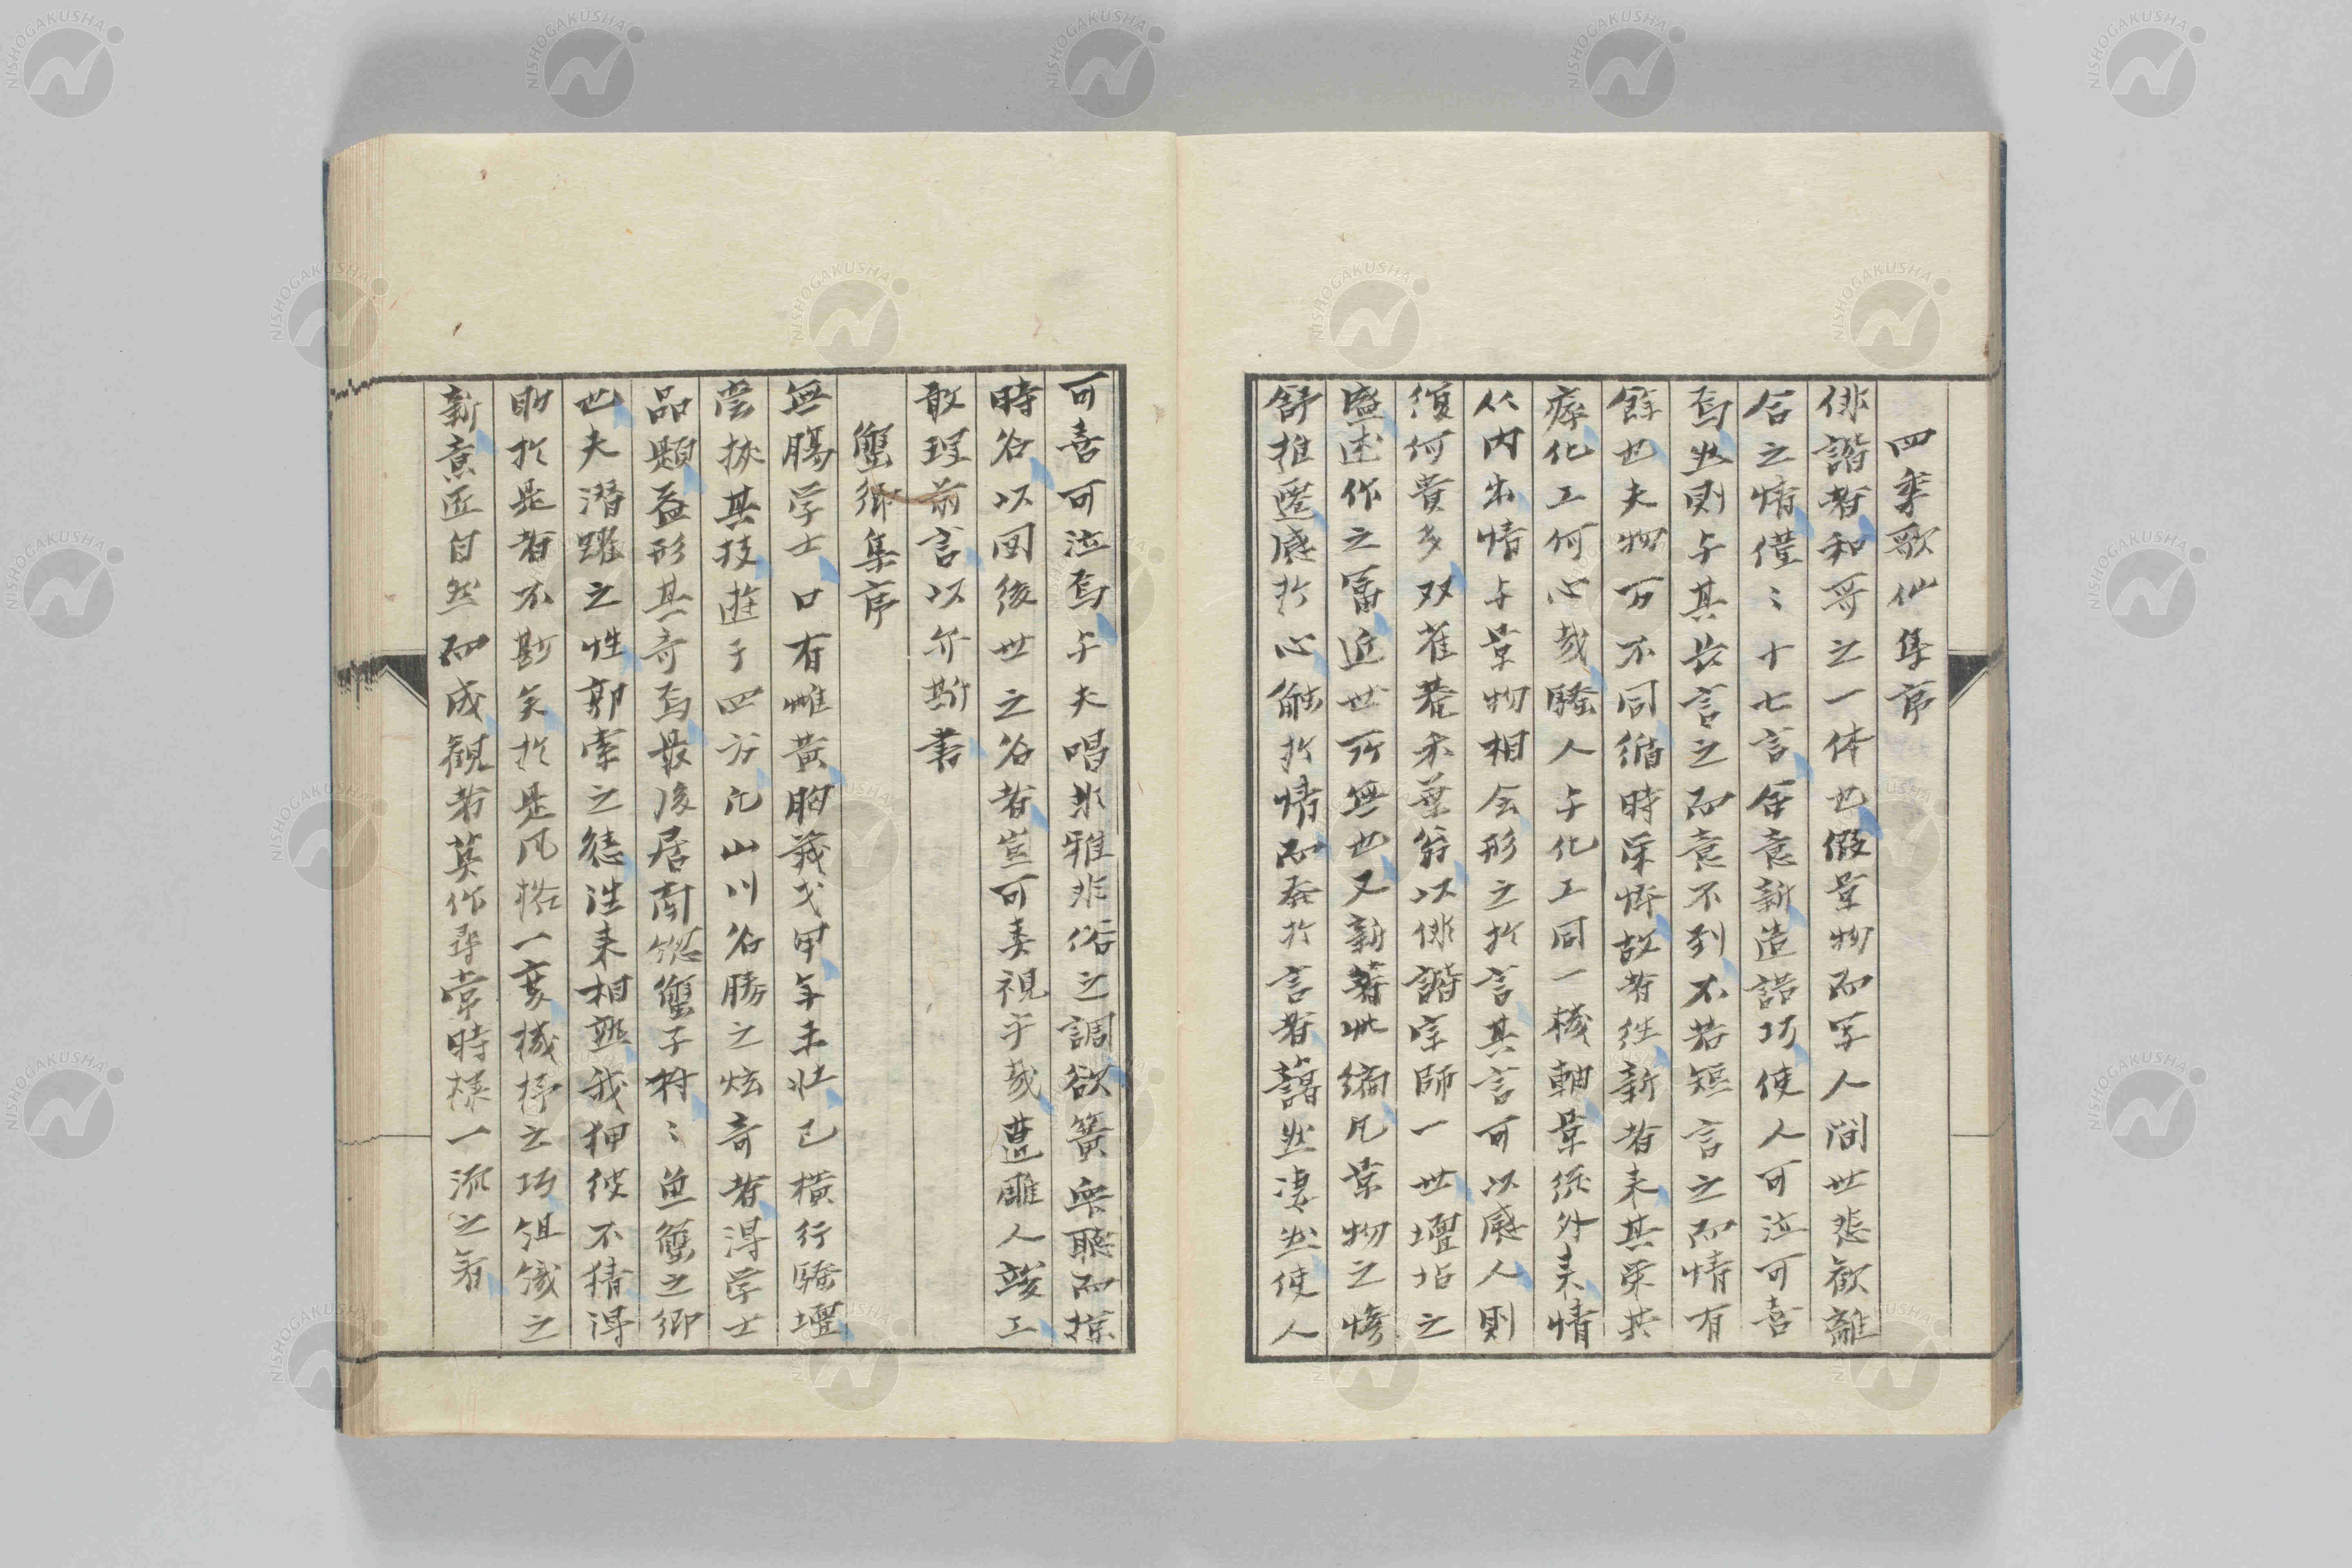 四季歌仙集序
俳諧者和哥之一体也假景物而写人間世悲歓離
合之情僅〻十七言命意新造語巧使人可泣可喜
焉然則与其長言之而意不到不若短言之而情有
餘也夫物万不同循時栄悴故者往新者来其栄其
瘁化工何心哉騒人与化工同一機軸景従外来情
从内出情与景物相会形之於言其言可以感人則
復何貴多双雀菴禾葉翁以俳諧宗師一世壇坫之
盛述作之富近世所無也又新著此編凡景物之惨
舒推遷感於心触於情而発於言者藹然凄然使人
可喜可泣焉与夫唱非雅非俗之調欲簧衆聴而掠
時名以図後世之名者豈可春視乎哉遭雕人竣工
敢理前言以弁斯書
蟹郷集序
無腸学士口有雌黄胸義戈甲年未壮已横行騒壇
嘗挾其技遊于四方凡山川名勝之炫奇者得学士
品題益形其奇焉最後居南総蟹子村〻魚蟹之郷
也夫潜躍之性郭索之徳往来相熟我狎彼不猜得
助於是者不尠矣於是風格一変機杼之巧組織之
新意匠自然而成観者莫作尋常時様一派之看